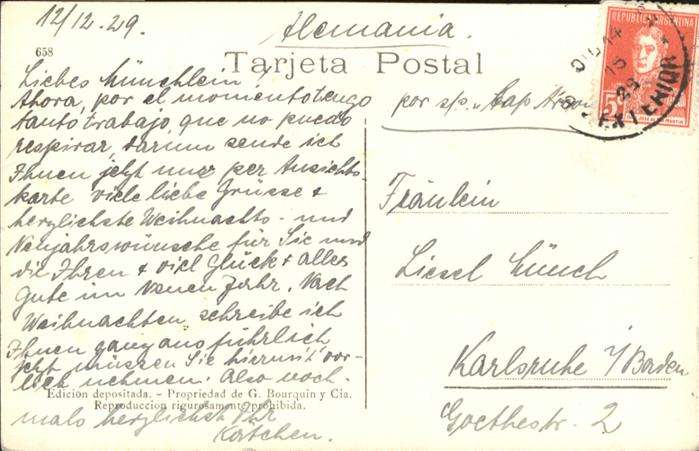 12/12.29.
Alemania.
REPUBLICA ARGENTINA
5
658
Tarjeta Postal
Liebes Münchlein,
Ahora, por el momento tengo
tanto trabajo, que no puedo
respirar, darum sende ich
Ihnen jetzt nur per Ansichts-
karte viele liebe Grüsse &
herzlichste Weihnachts- und
Neujahrswünsche für Sie und
die Ihren & viel Glück & alles
Gute im Neuen Jahr. Nach
Weihnachten schreibe ich
Ihnen ganz ausführlich
jetzt müssen Sie hiermit vor-
lieb nehmen. Also noch-
mals herzlichst Ihr
Kätchen.
por s/p. „Cap
Fräulein
Liesel Münch
Karlsruhe i/Baden
Goethestr. 2
Edición depositada. - Propriedad de G. Bourquin y Cia.
Reproduccion rigurosamente prohibida.